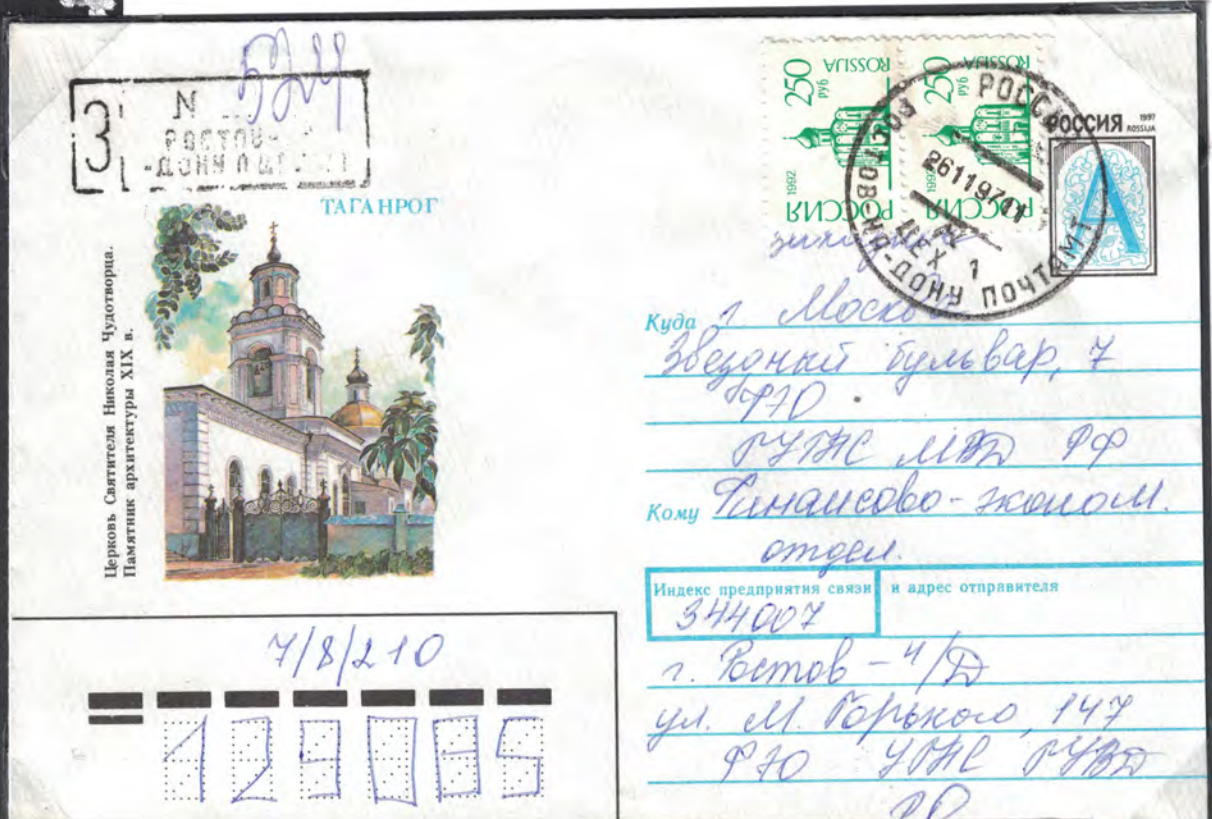 З
N 524
РОСТОВ-
-ДОНУ
ТАГАНРОГ
Церковь Святителя Николая Чудотворца.
Памятник архитектуры XIX в.
250 руб ROSSIJA
1992 РОССИЯ
250 руб ROSSIJA
1992 РОССИЯ
РОССИЯ
РОСТОВ-НА-ДОНУ ПОЧТАМТ
26119711
ЦЕХ 1
РОССИЯ 1997
ROSSIJA
А
заказное
Куда г. Москва
Звездный бульвар, 7
ФЭО
МВД РФ
Кому Финансово-эконом.
отдел.
Индекс предприятия связи и адрес отправителя
344007
г. Ростов-н/Д
ул. М. Горького, 147
ФЭО ГУВД
РО
7/8/210
129085